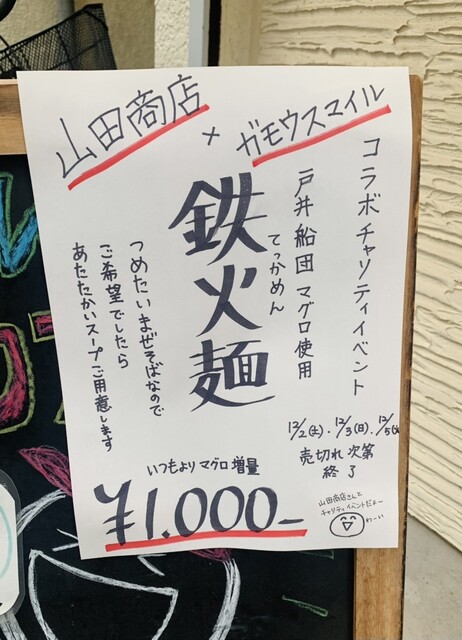 山田商店
×
ガモウスマイル
コラボチャリティイベント
戸井船団マグロ使用
鉄火麺
てっかめん
つめたいまぜそばなので
ご希望でしたら
あたたかいスープご用意します
12/2(土).12/3(日).12/5(火
売切れ次第
終了
いつもよりマグロ増量
¥1.000-
山田商店さんと
チャリティイベントだよー
わーい